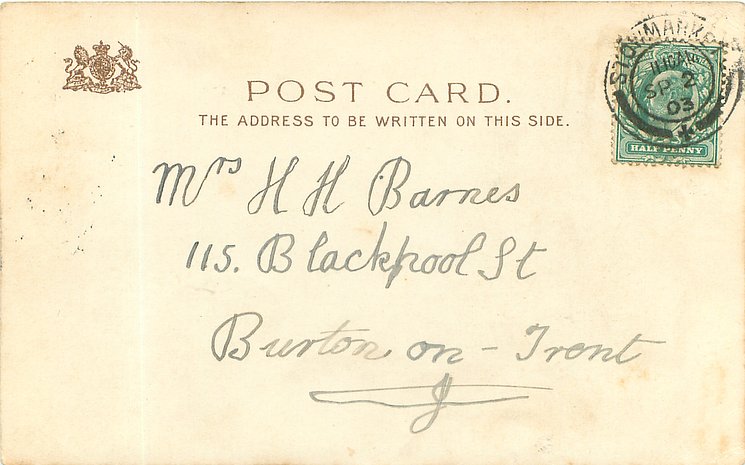 STOWMARKET
11.15AM
SP 2
03
HALF PENNY
POST CARD.
THE ADDRESS TO BE WRITTEN ON THIS SIDE.
Mrs H H Barnes
115. Blackpool St
Burton on - Trent